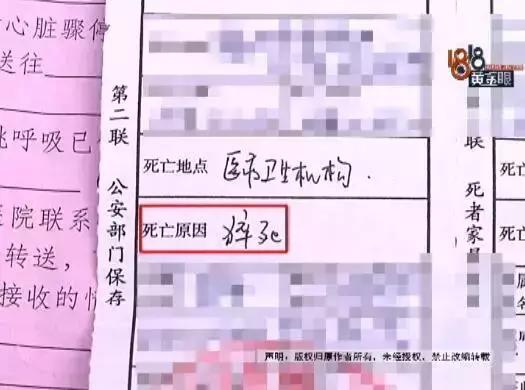 心脏骤停
送往
1818
黄金眼
第二联 公安部门保存
死亡地点 医疗卫生机构.
死亡原因 猝死
死者家
呼吸已
医院联系
转送,
接收的情
声明:版权归原作者所有,未经授权,禁止改编转载